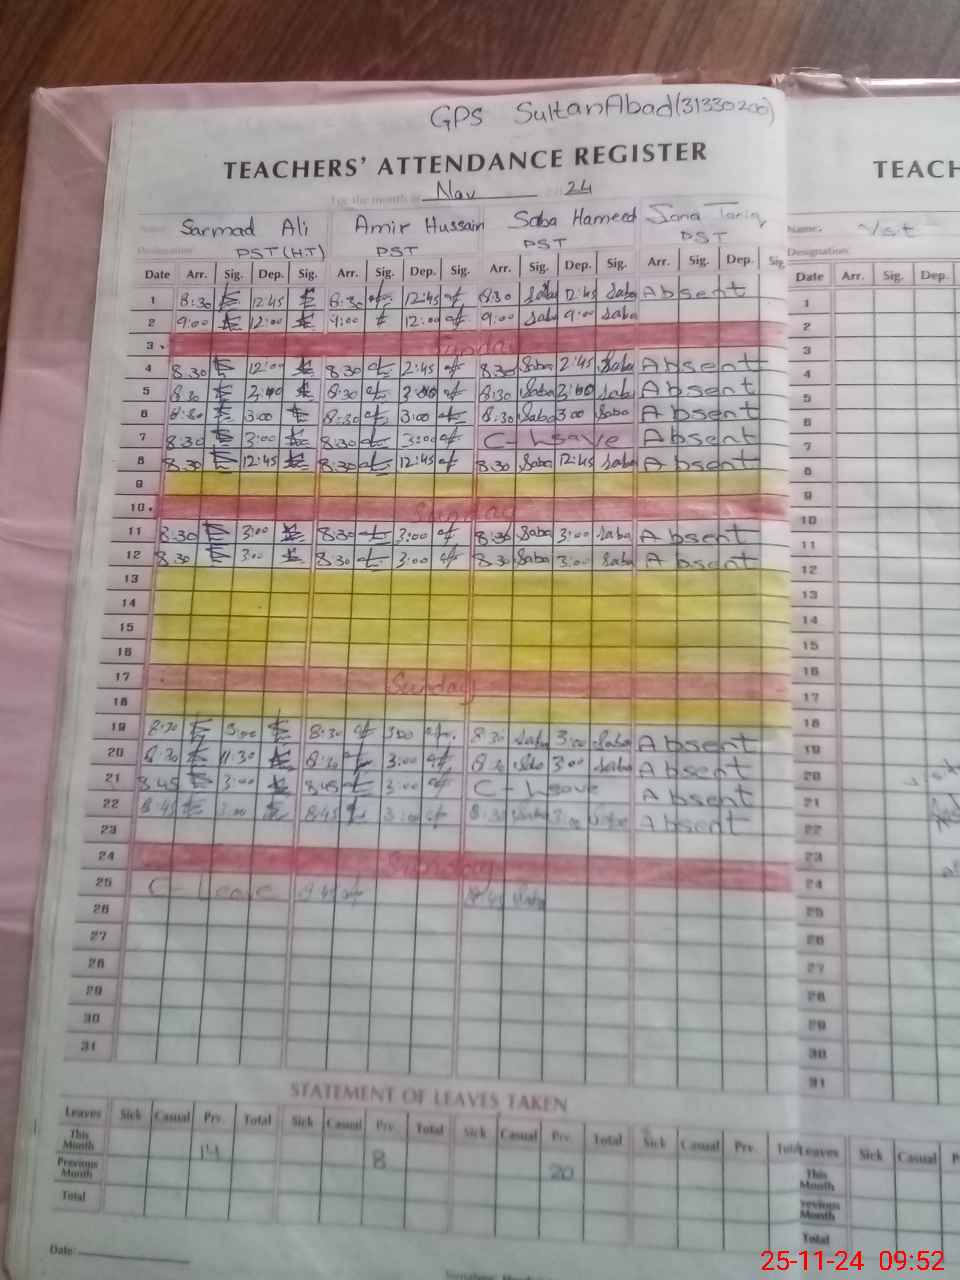 GPS SultanAbad (31330200)
TEACHERS' ATTENDANCE REGISTER
TEACH
For the month of Nov 24
Sarmad Ali Amir Hussain Saba Hameed Sana Tariq
Name:
Designation PST (H.T) PST PST PST
Designation:
Date Arr. Sig. Dep. Sig. Arr. Sig. Dep. Sig. Arr. Sig. Dep. Sig. Arr. Sig. Dep. Sig.
Date Arr. Sig. Dep.
1 8:30 12:45 8:30 12:45 8:30 Saba 12:45 Saba Absent
2 9:00 12:00 9:00 12:00 9:00 Saba 9:00 Saba
3 Sunday
4 8:30 12:00 8:30 2:45 8:30 Saba 2:45 Saba Absent
5 8:30 8:30 8:30 Saba Saba Absent
6 8:30 3:00 8:30 3:00 8:30 Saba 3:00 Saba Absent
7 8:30 3:00 8:30 3:00 C-Leave Absent
8 8:30 12:45 8:30 12:45 8:30 Saba 12:45 Saba Absent
9
10 Sunday
11 8:30 3:00 8:30 3:00 8:30 Saba 3:00 Saba Absent
12 8:30 3:00 8:30 3:00 8:30 Saba 3:00 Saba Absent
13
14
15
16
17 Sunday
18
19 8:30 3:00 8:30 3:00 8:30 Saba 3:00 Saba Absent
20 8:30 11:30 8:30 3:00 Saba 3:00 Saba Absent
21 8:45 3:00 8:45 3:00 C-Leave Absent
22 8:45 3:00 8:45 3:00 8:30 Saba 3:00 Absent
23
24 Sunday
25 C-Leave 8:45 8:45 Saba
26
27
28
29
30
31
1
2
3
4
5
6
7
8
9
10
11
12
13
14
15
16
17
18
19
20
21
22
23
24
25
26
27
28
29
30
31
STATEMENT OF LEAVES TAKEN
Leaves Sick Casual Prv. Total Sick Casual Prv. Total Sick Casual Prv. Total Sick Casual Prv.
Leaves Sick Casual
This Month 14 8 20
Previous Month
Total
This Month
Previous Month
Total
Date:
25-11-24 09:52